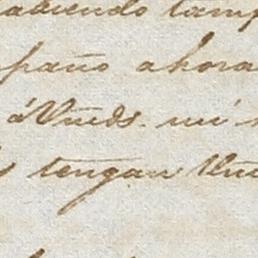 abiendo tamp
paño ahora
á Vmds. mi
tengan Vm